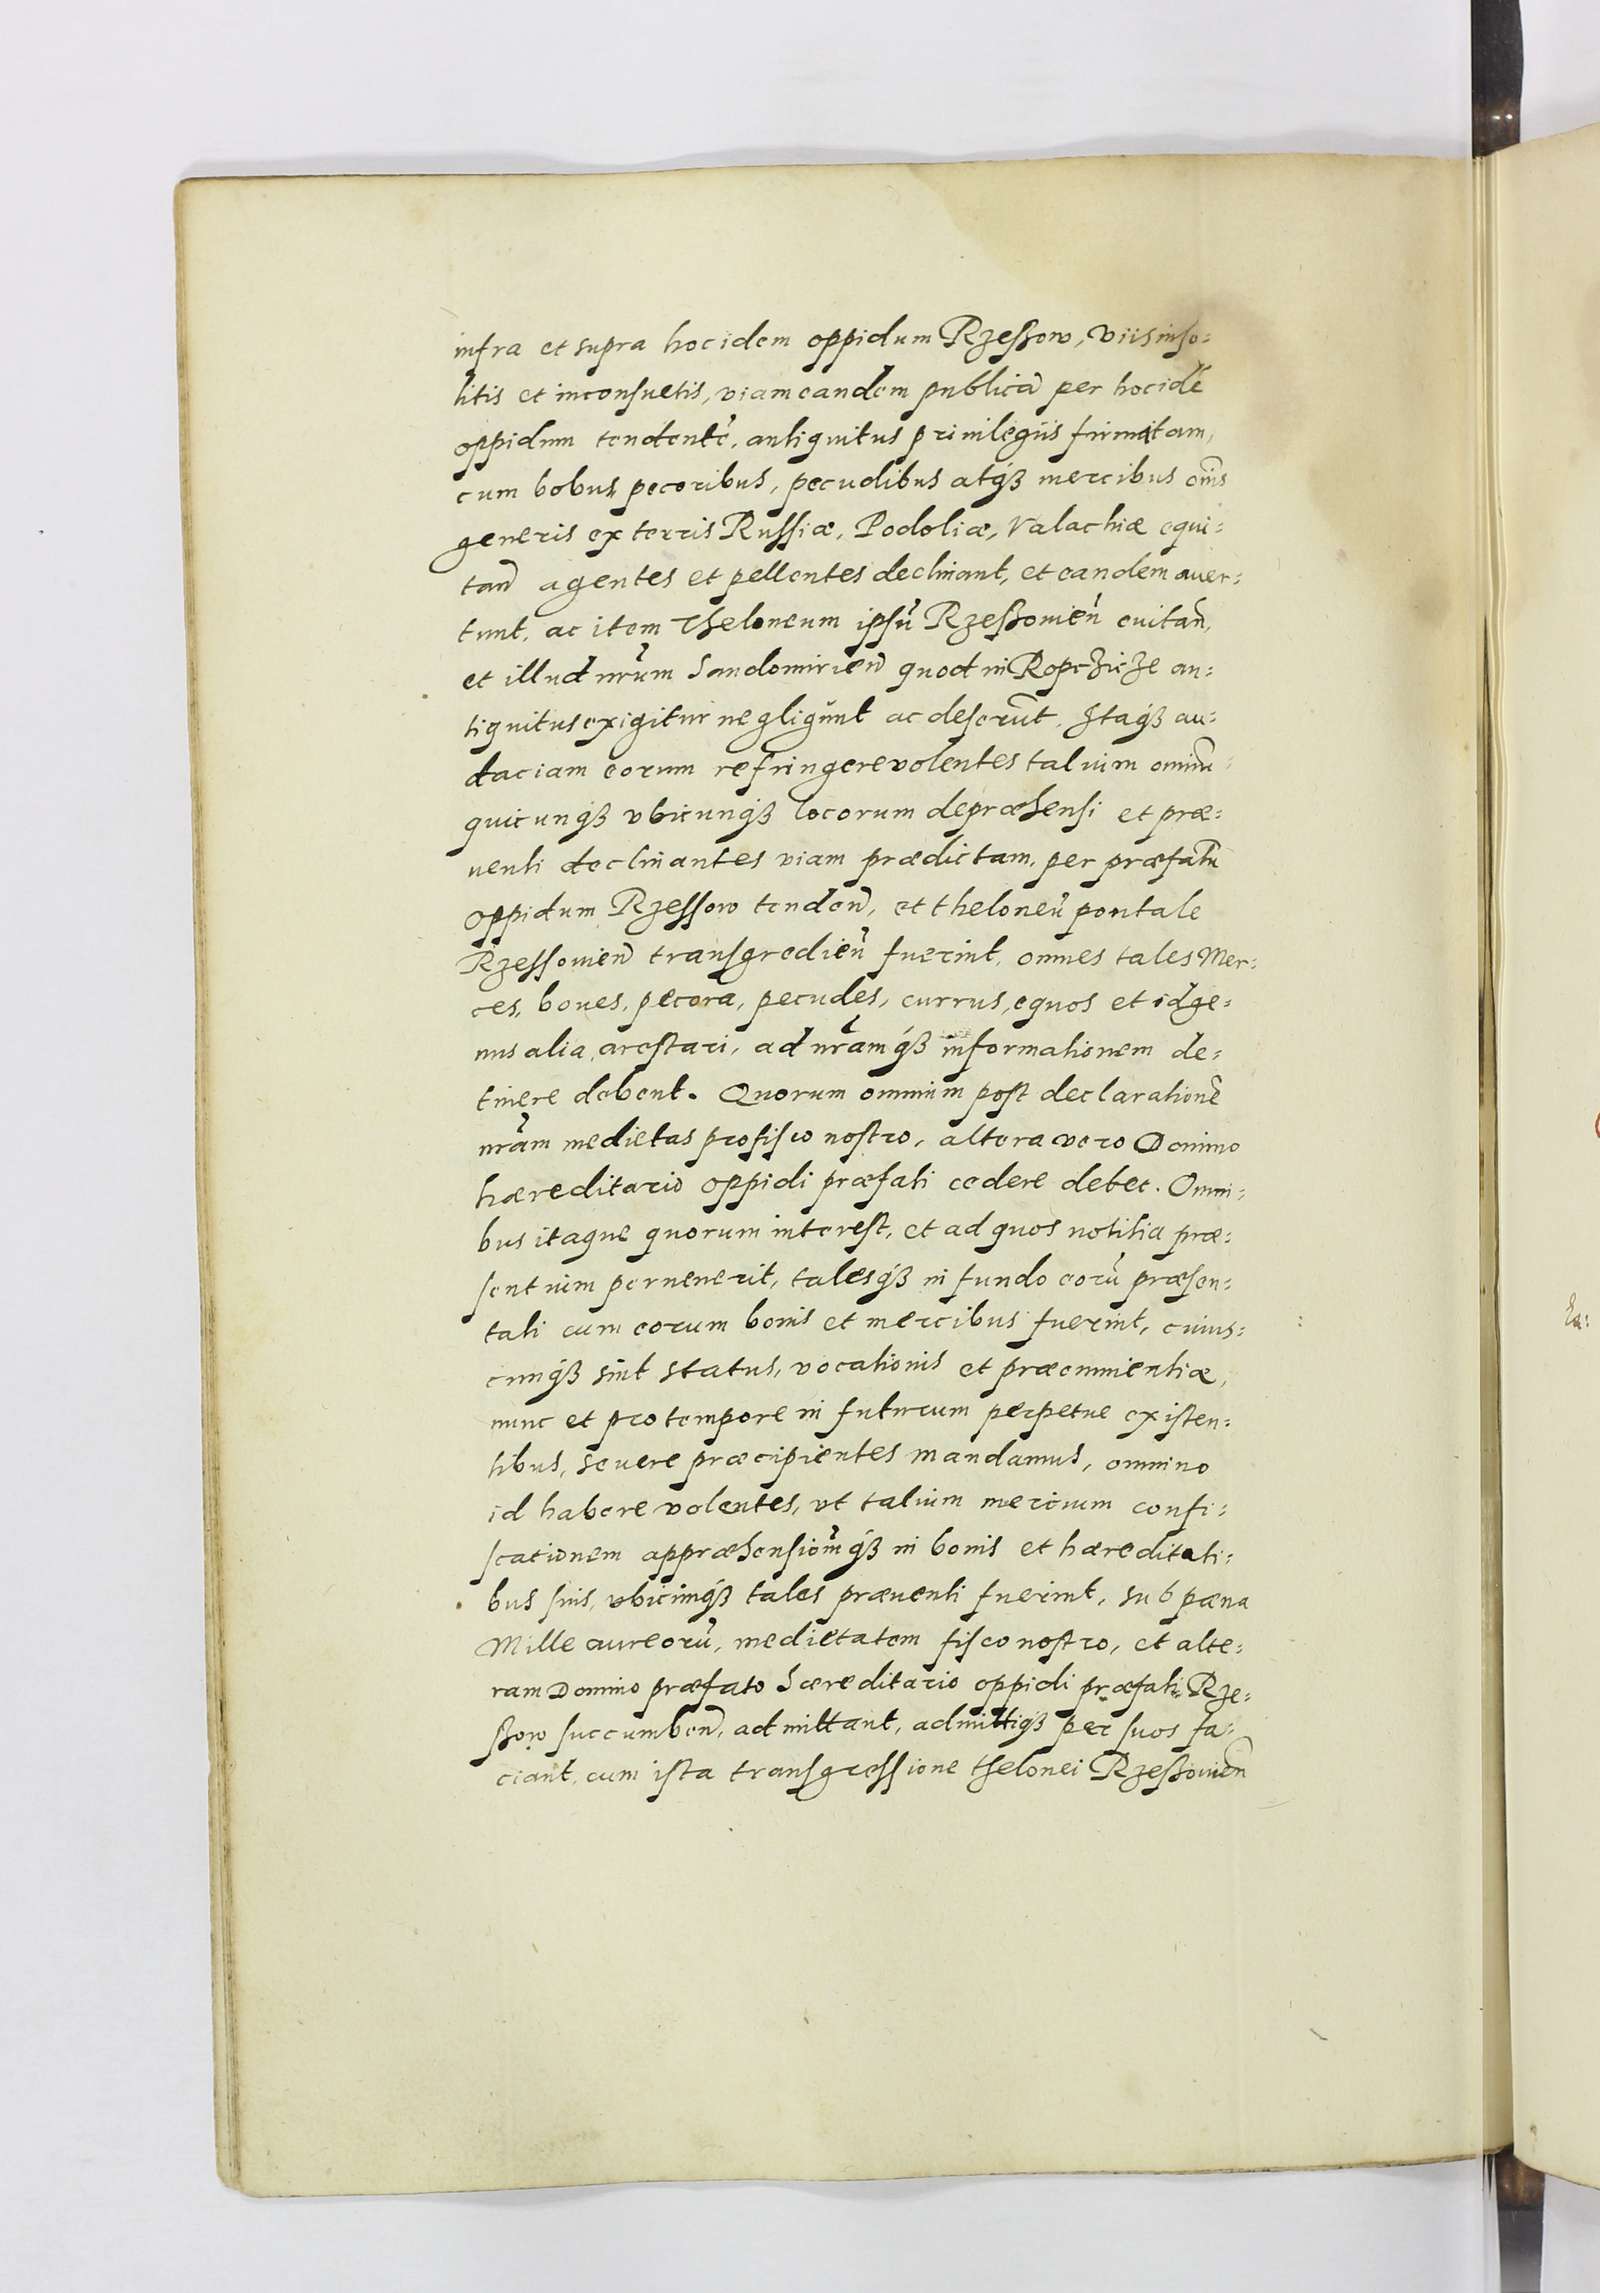 infra et supra hoc idem oppidum Rzeſſow, viis inso:
litis et inconſuetis, viam eandem publicā per hoc idē
oppidum tendentē, antiquitus priuilegiis firmatam,
cum bobus pecoribus, pecudibus atqȝ mercibus oīns
generis ex terris Ruſſiæ, Podoliæ, Valachiæ equi:
tan̄ agentes et pellentes declinant, et eandem auer:
tunt, ac item Theloneum ipsū Rzeſſouien̄ euitan̄,
et illud nr̄um Sandomirien̄ quod in Ropczicze an:
tiquitus exigitur negligūnt ac deserūnt. Itaqȝ au:
daciam eorum refringere volentes talium omniū
quicunqȝ vbicunqȝ locorum depræhensi et præ:
uenti declinantes viam prædictam, per præfatū
oppidum Rzeſſow tenden̄, et theloneū pontale
Rzeſſouien̄ tranſgredien̄ fuerint, omnes tales Mer:
ces, boues, pecora, pecudes, currus, equos et id ge:
nus alia, areſtari, ad nr̄amqȝ informationem de:
tinere debent. Quorum omnium poſt declarationē
nr̄am medietas pro fisco noſtro, altera vero Domino
hæreditario oppidi præfati cedere debet. Omni:
bus itaque quorum intereſt, et ad quos notitia præ:
ſentium peruenerit, talesqȝ in fundo eorū præſen:
tati cum eorum bonis et mercibus fuerint, cuius:
cunqȝ sint status, vocationis et præeminentiæ,
nunc et pro tempore in futurum perpetue exiſten:
tibus, seuere præcipientes mandamus, omnino
id habere volentes, vt talium mercium confi:
ſcationem appræhenſionēmqȝ in bonis et hæreditati:
bus ſuis, vbicūnqȝ tales præuenti fuerint, sub pæna
Mille aureorū, medietatem fisco noſtro, et alte:
ram Domino præfato hæreditario oppidi præfati Rze:
ſſow ſuccumben̄, admittant, admittiqȝ per ſuos fa:
ciant, cum iſta tranſgreſſione thelonei Rzeſſouien̄
Ea: